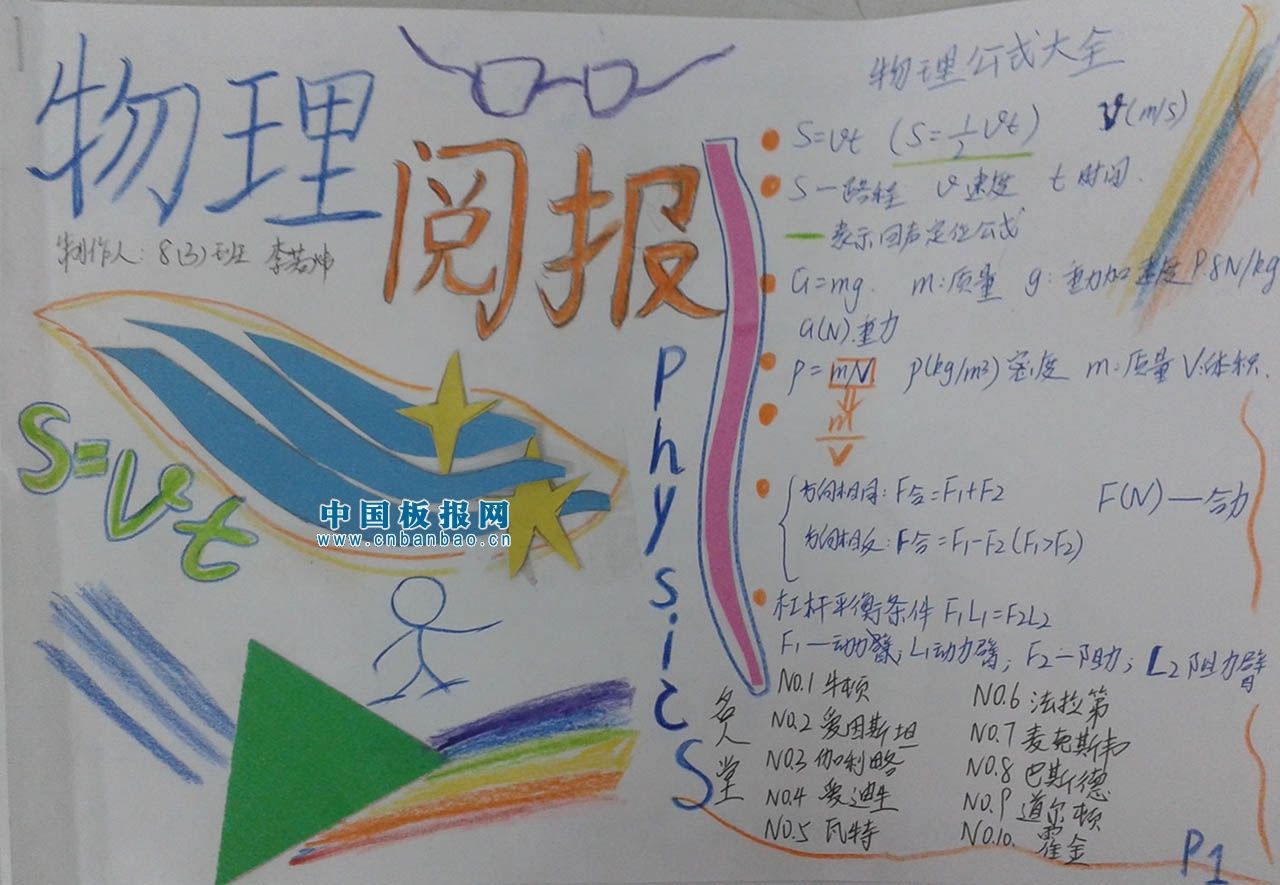 物理
阅报
制作人：8(3)班 李若炜
S=vt
中国板报网
www.cnbanbao.cn
physics
物理公式大全
S=vt (S=½vt) v(m/s)
S—路程 v 速度 t 时间.
—表示回声定位公式
G=mg. m:质量 g:重力加速度 9.8N/kg
G(N).重力
ρ= m/V ρ(kg/m³)密度 m:质量 V:体积.
m
V
方向相同: F合=F₁+F₂ F(N)—合力
方向相反: F合=F₁-F₂(F₁>F₂)
杠杆平衡条件 F₁L₁=F₂L₂
F₁—动力臂; L₁动力臂; F₂—阻力; L₂阻力臂
名人堂
NO.1 牛顿
NO.2 爱因斯坦
NO.3 伽利略
NO.4 爱迪生
NO.5 瓦特
NO.6 法拉第
NO.7 麦克斯韦
NO.8 巴斯德
NO.9 道尔顿
NO.10. 霍金
P1